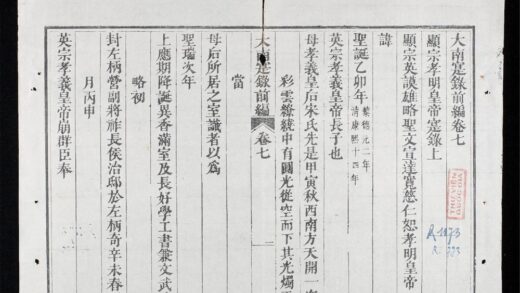 大南寔錄前編卷七
顯宗孝明皇帝寔錄上
顯宗英謨雄略聖文宣達寬慈仁恕孝明皇帝
諱
聖誕乙卯年
黎德元二年
清康熙十四年
英宗孝義皇帝長子也
母孝義皇后宋氏先是甲寅秋西南方天開一
彩雲繚繞中有圓光從空而下其光燭
大南寔錄前編
卷七
一
當
母后所居之室識者以為
聖瑞次年
上應期降誕異香滿室及長好學工書兼文武
略初
封左柄營副將祚長侯治邸於左柄奇辛未春
月丙申
英宗孝義皇帝崩群臣奉
THƯ VIỆN
QUỐC GIA